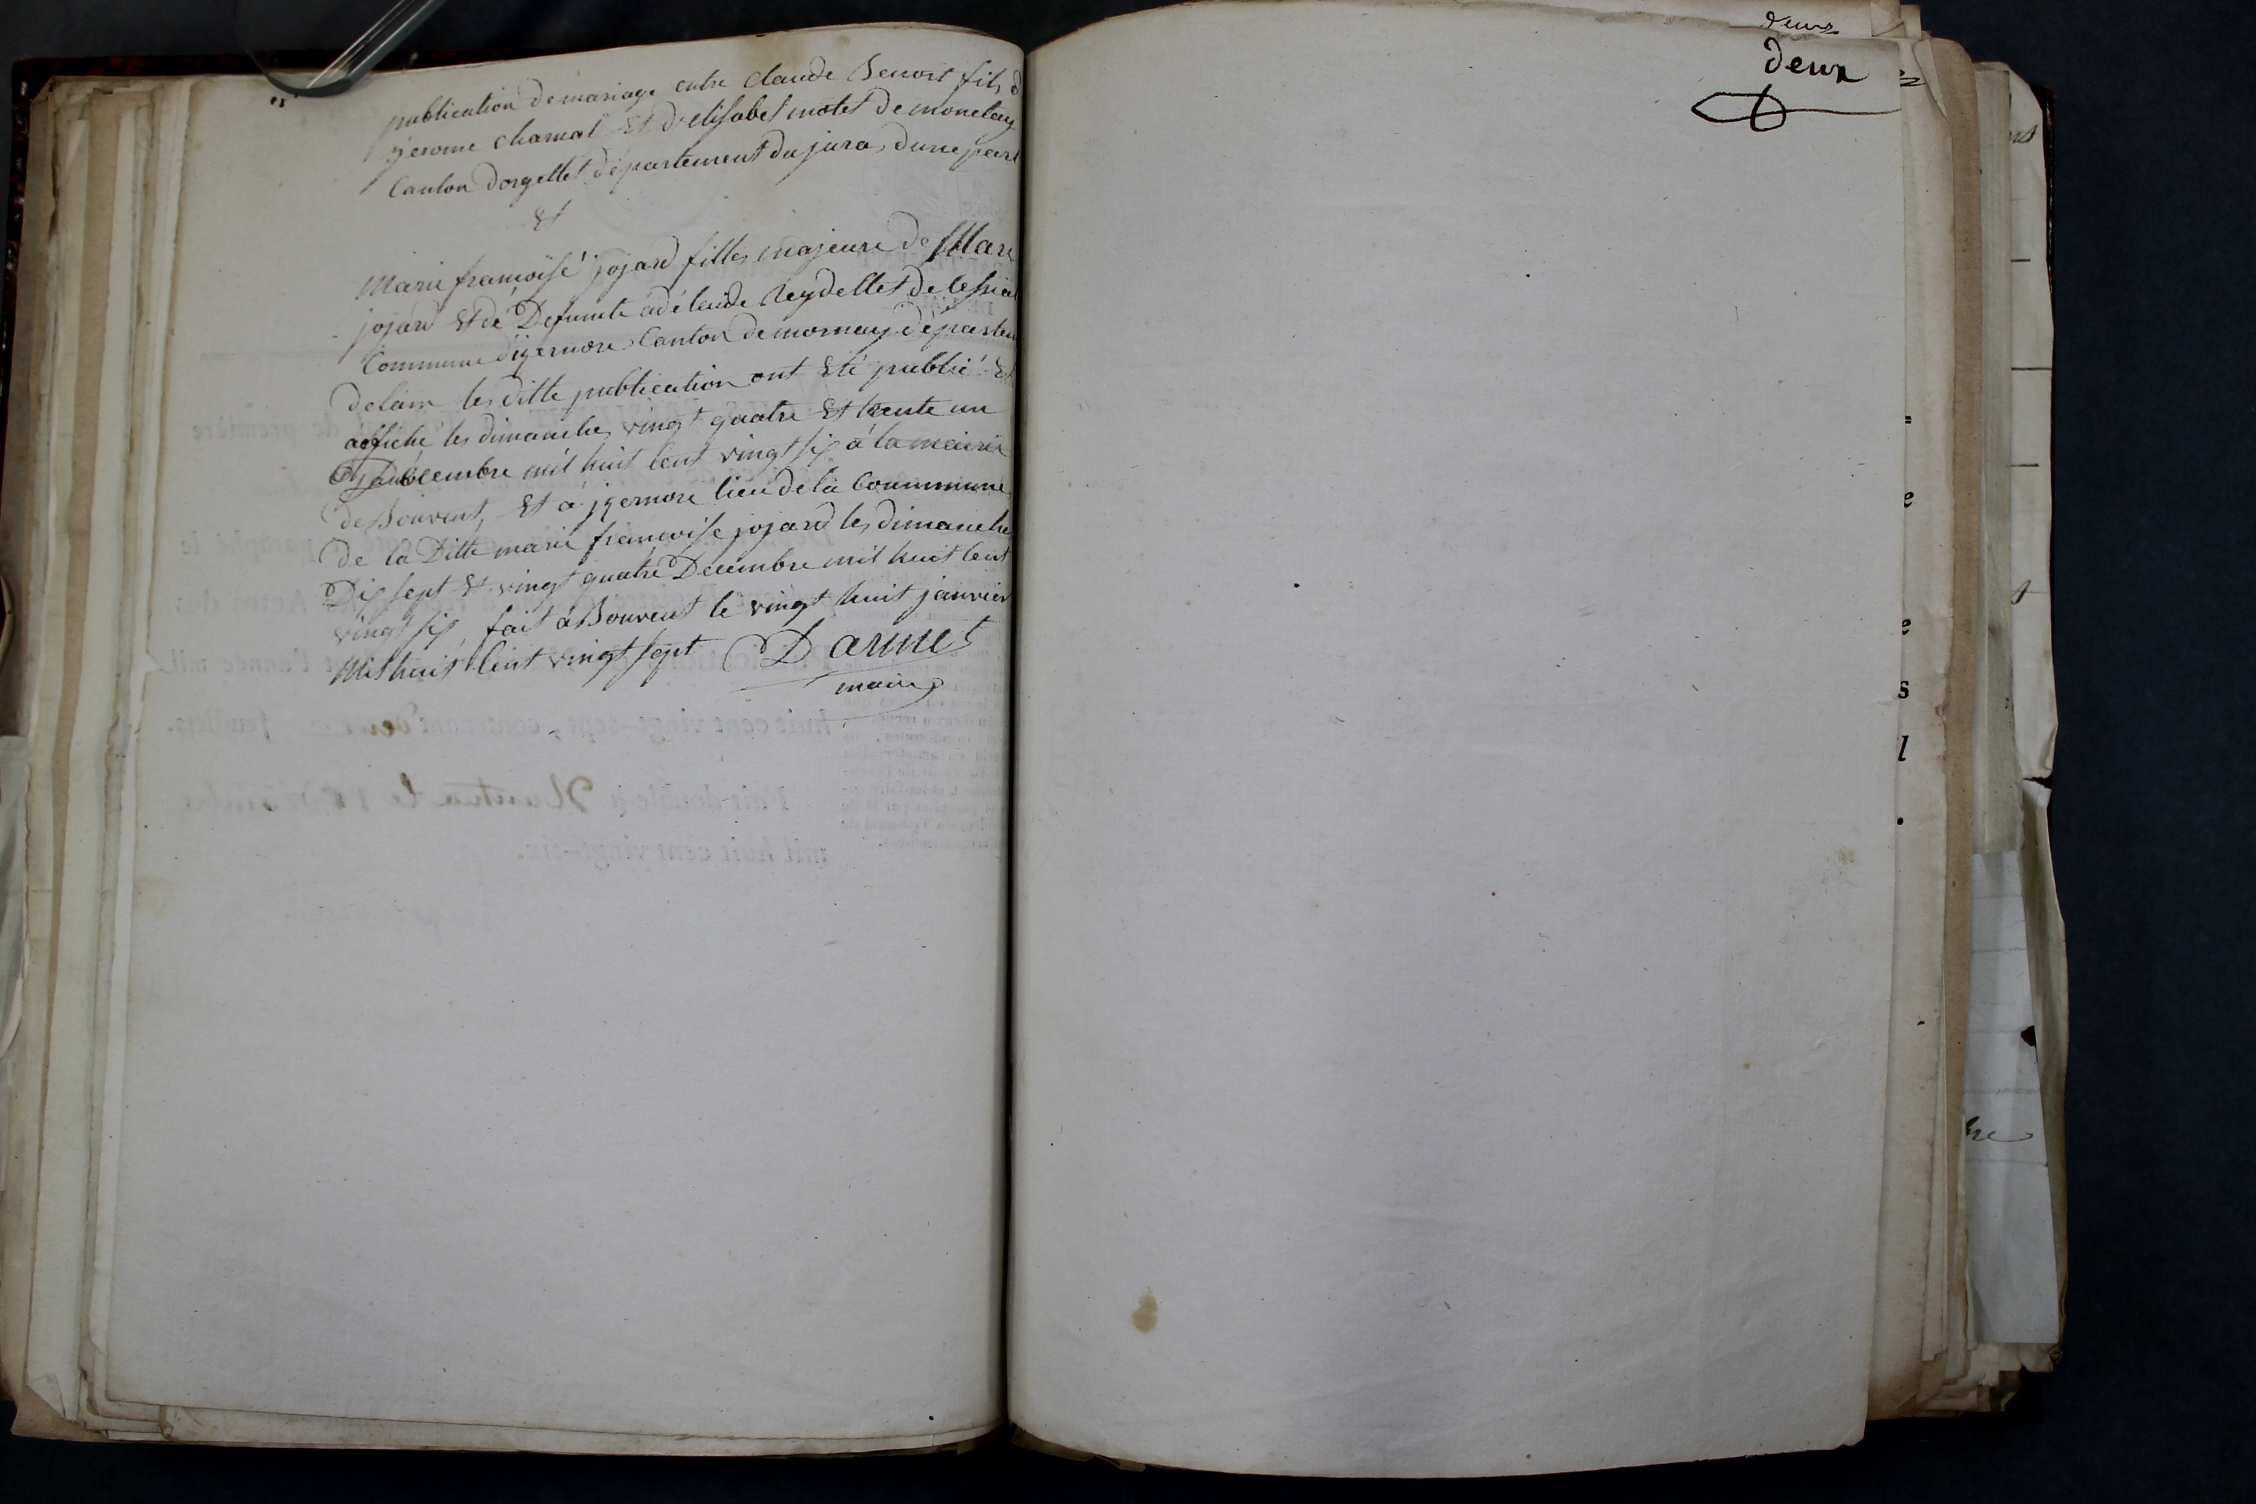 publication de mariage entre Claude Benoit fils d
jerome chamal Et d'elisabet motet de monetay
Canton dorgellet département du jura, dune part
Et
Marie françoise jojard filles majeure de Marc
jojard Et de Defunte adélaide Reydellet de lessiat
Commune d'izernore Canton de mornay départem
delain les ditte publication ont Eté publié Et
affiché les dimanches vingt quatre Et trente un
Décembre mil huit Cent vingt six à la mairie
de Bouvent, Et à jzernore lieu de la Commmune
de la Ditte marie francoise jojard les dimanche
Dix sept Et vingt quatre Décembre mil huit Cent
vingt six, fait à Bouvent le vingt huit janvier
Mil huit Cent vingt sept Darmet
maire
deux
deux